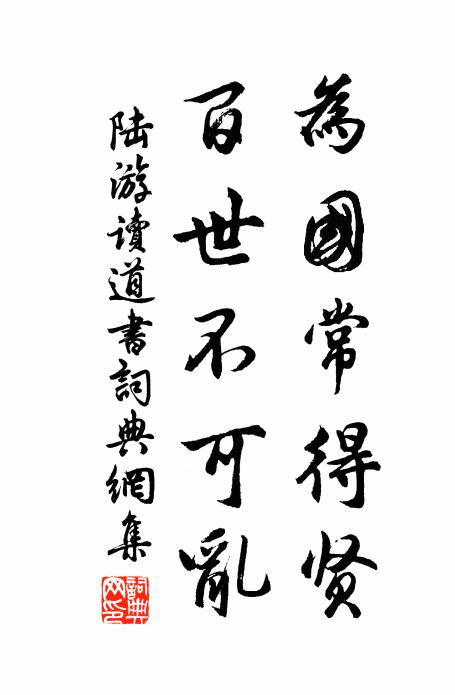 為國常得贤
百世不可亂
陆游讀道書詞典網集
詞典